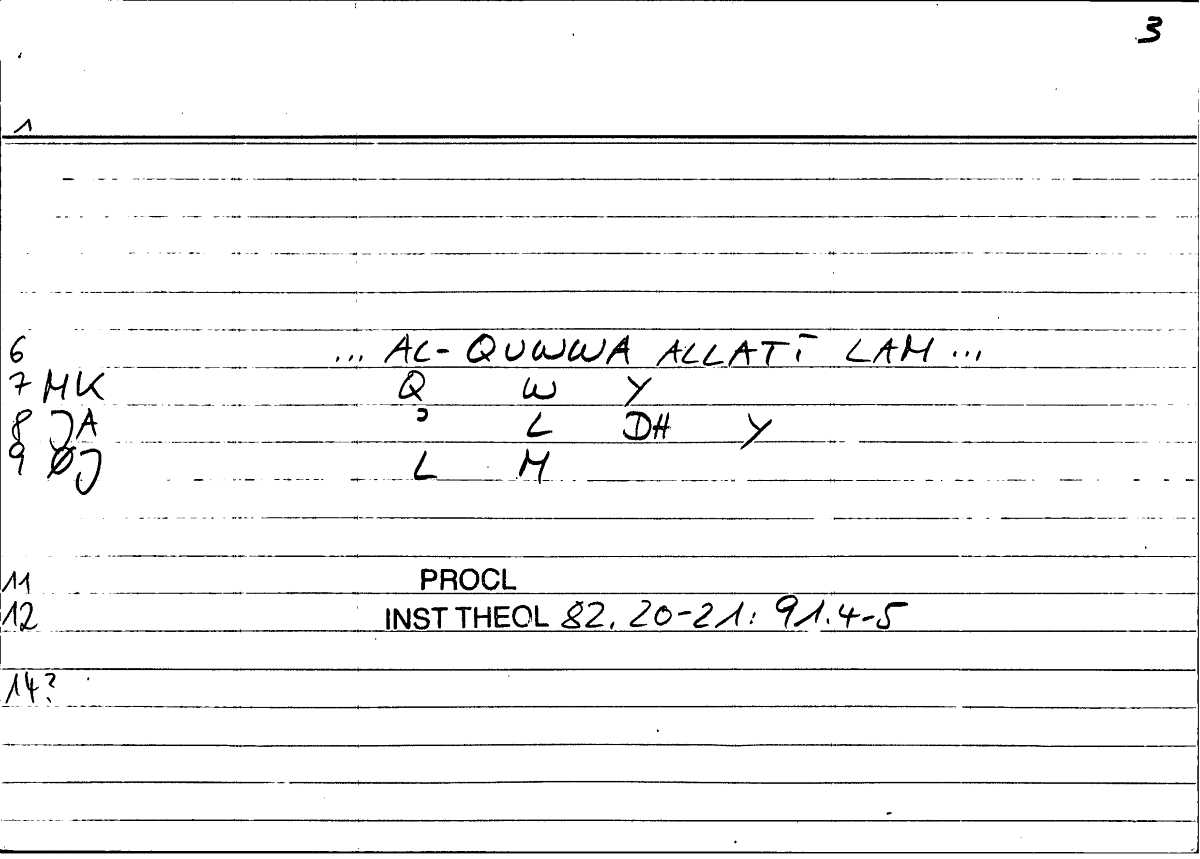 3
1
6 ... AL-QUWWA ALLATĪ LAM ...
7 MK Q W Y
8 JA ʾ L DH Y
9 ØJ L M
11 PROCL
12 INST THEOL 82.20-21: 91.4-5
14?